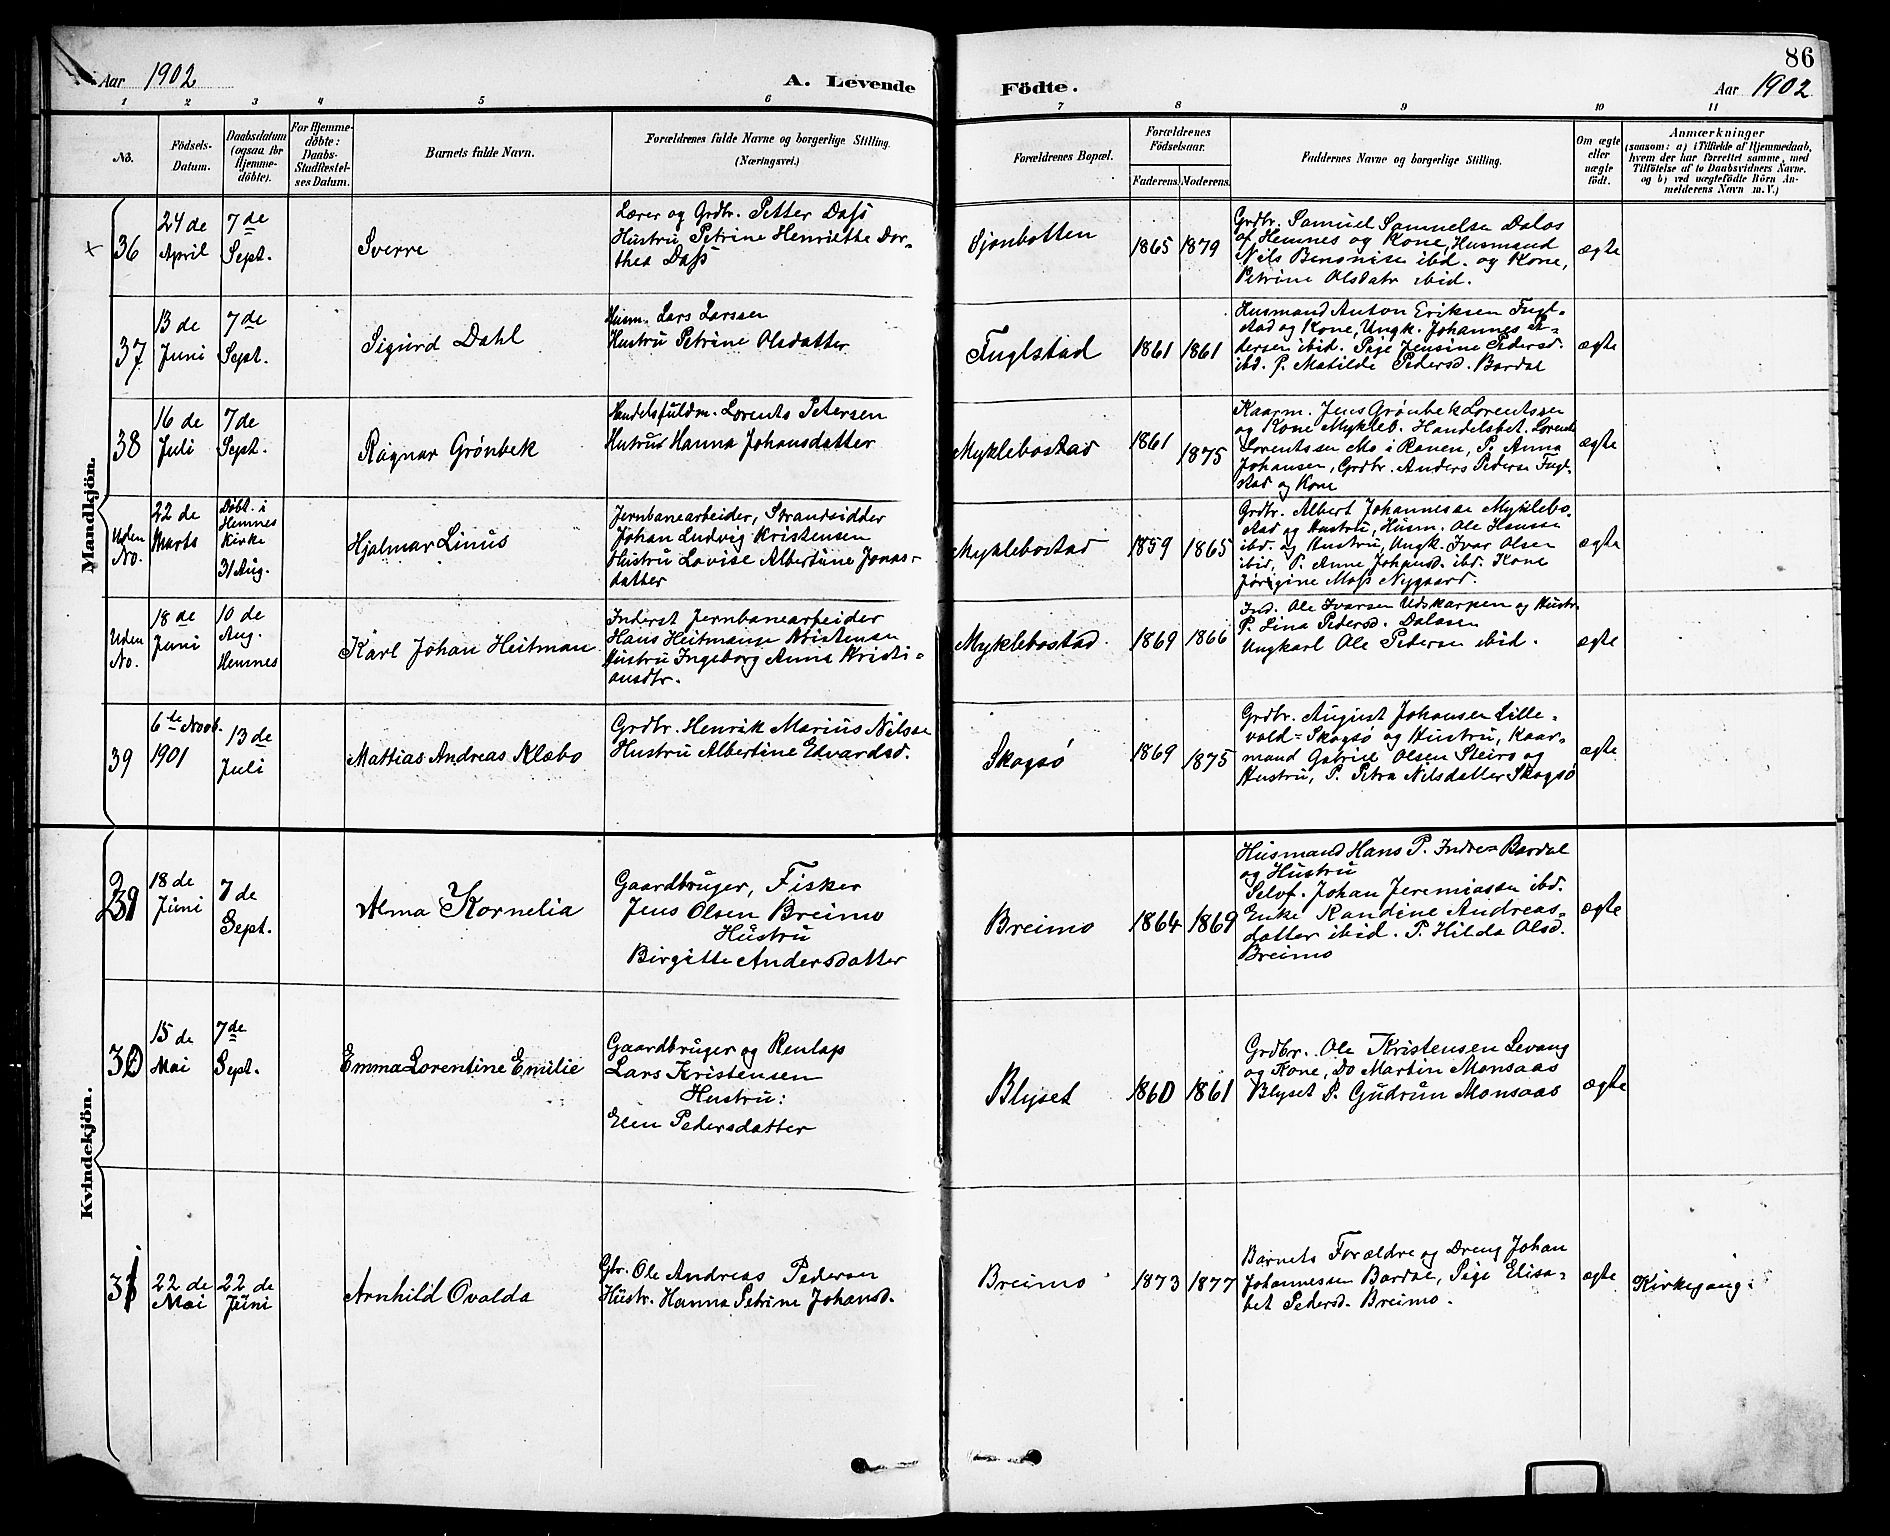 86
Aar 1902
A. Levende
Födte.
Aar 1902
1 2 3 4 5 6 7 8 9 10 11
No.
Födsels-
Datum.
Daabsdatum
(ogsaa for
Hjemme-
döbte).
For Hjemme-
döbte:
Daabs-
Stadfæstel-
ses Datum.
Barnets fulde Navn.
Forældrenes fulde Navne og borgerlige Stilling.
(Næringsvei.)
Forældrenes Bopæl.
Forældrenes
Födselsaar.
Faderens.
Moderens.
Faddernes Navne og borgerlige Stilling.
Om ægte
eller
uægte
födt.
Anmærkninger
(saasom: a) i Tilfælde af Hjemmedaab,
hvem der har forrettet samme, med
Tilföielse af to Daabsvidners Navne.
og b) ved uægtefödte Börn An-
melderens Navn m. V.)
Mandkjön.
+ 36
24 de
April
7 de
Sept.
Sverre
Lærer og Grdbr. Petter Dass
Hustru Petrine Henriette Dor-
thea Dass
Sjonbotten
1865 1879
Grdbr. Samuel Samuelsen Dalos
af Hemnes og Kone, Husmand
Nils Bensnise ibid. og Kone,
Petrine Olsdatr ibid.
ægte
37
13 de
Juni
7 de
Sept.
Sigurd Dahl
Husm. Lars Larssen
Hustru Petrine Olsdatter
Fuglstad
1861 1861
Husmand Anton Eriksen Fugl-
stad og Kone, Ungk. Johannes
dersen ibid. Pige Jensine Pedersd.
ibd. P. Matilde Pedersd. Bardal
ægte
38
16 de
Juli
7 de
Sept.
Ragnar Grønbek
Handelsfuldm. Lorents Petersen
Hutrus Hanna Johansdatter
Myklebostad
1861
1875
Kaarm. Jens Grønbek Lorentssen
og Kone Mykleb. Handelsbet. Lorents
Lorentssen Mo i Ranen, P. Anna
Johansen, Grdbr. Anders Pederse Fugl-
stad og Kone
ægte
Uden
No.
22 de
Marts
Døbt i
Hemnes
Kirke
31 Aug.
Hjalmar Linus
Jernbanearbeider, Strandsidder
Johan Ludvig Kristensen
Hustru Lovise Albertine Jonas-
datter
Myklebostad
1859 1865
Grdbr. Albert Johannesse Myklebo-
stad og Hustru, Husm. Ole Hansse
ibd. og Hustru, Ungk. Ivar Olsen
ibid, P. Anne Johansd. ibd. Kone
Jørigine Moss Nygaard.
ægte
Uden
No.
18 de
Juni
10 de
Aug.
Hemnes
Karl Johan Heitman
Inderst Jernbanearbeider
Hans Heitmanse Kristensen
Hustru Ingeborg Anna Kristi-
ansdtr.
Myklebostad
1869 1866
Ind. Ole Ivarsen Udskarpen og Hustr.
P. Lina Pedersd. Dalosen
Ungkarl Ole Pedersen ibid.
ægte
39
6te Novb.
1901
13 de
Juli
Mattias Andreas Klæbo
Grdbr. Henrik Marius Nilsse
Hustru Albertine Edvardsd.
Skogsø
1869
1875
Grdbr. August Johansen Lille-
vold=Skogsø og Hustru, Kaar-
mand Gabriel Olsen Steiro og
Hustru, P. Petra Nilsdatter Skogsø
ægte
Kvindekjön.
29
18 de
Juni
7 de
Sept.
Alma Kornelia
Gaardbruger, Fisker
Jens Olsen Breimo
Hustru
Birgitte Andersdatter
Breimo
1864 1869
Husmand Hans P. Indre=Bardal
og Hustru
Selvf. Johan Jeremiassen ibd.
Enke Randine Andreas-
datter ibid. P. Hilda Olsd.
Breimo
ægte
30
15 de
Mai
7 de
Sept.
Emma Lorentine Emilie
Gaardbruger og Renlap
Lars Kristensen
Hustru:
Elen Pedersdatter
Blyset
1860 1861
Grdbr. Ole Kristensen Levang
og Kone, Do Martin Monsaas
Blyset P. Gudrun Monsaas
ægte
31
22 de
Mai
22 de
Juni
Arnhild Ovalda
Gbr. Ole Andreas Pedersen
Hustr. Hanna Petrine Johansd.
Breimo
1873 1877
Barnets Forældre og Dreng Johan
Johannessen Bardal, Pige Elisa-
bet Pedersd. Breimo.
ægte
Kirkegang.